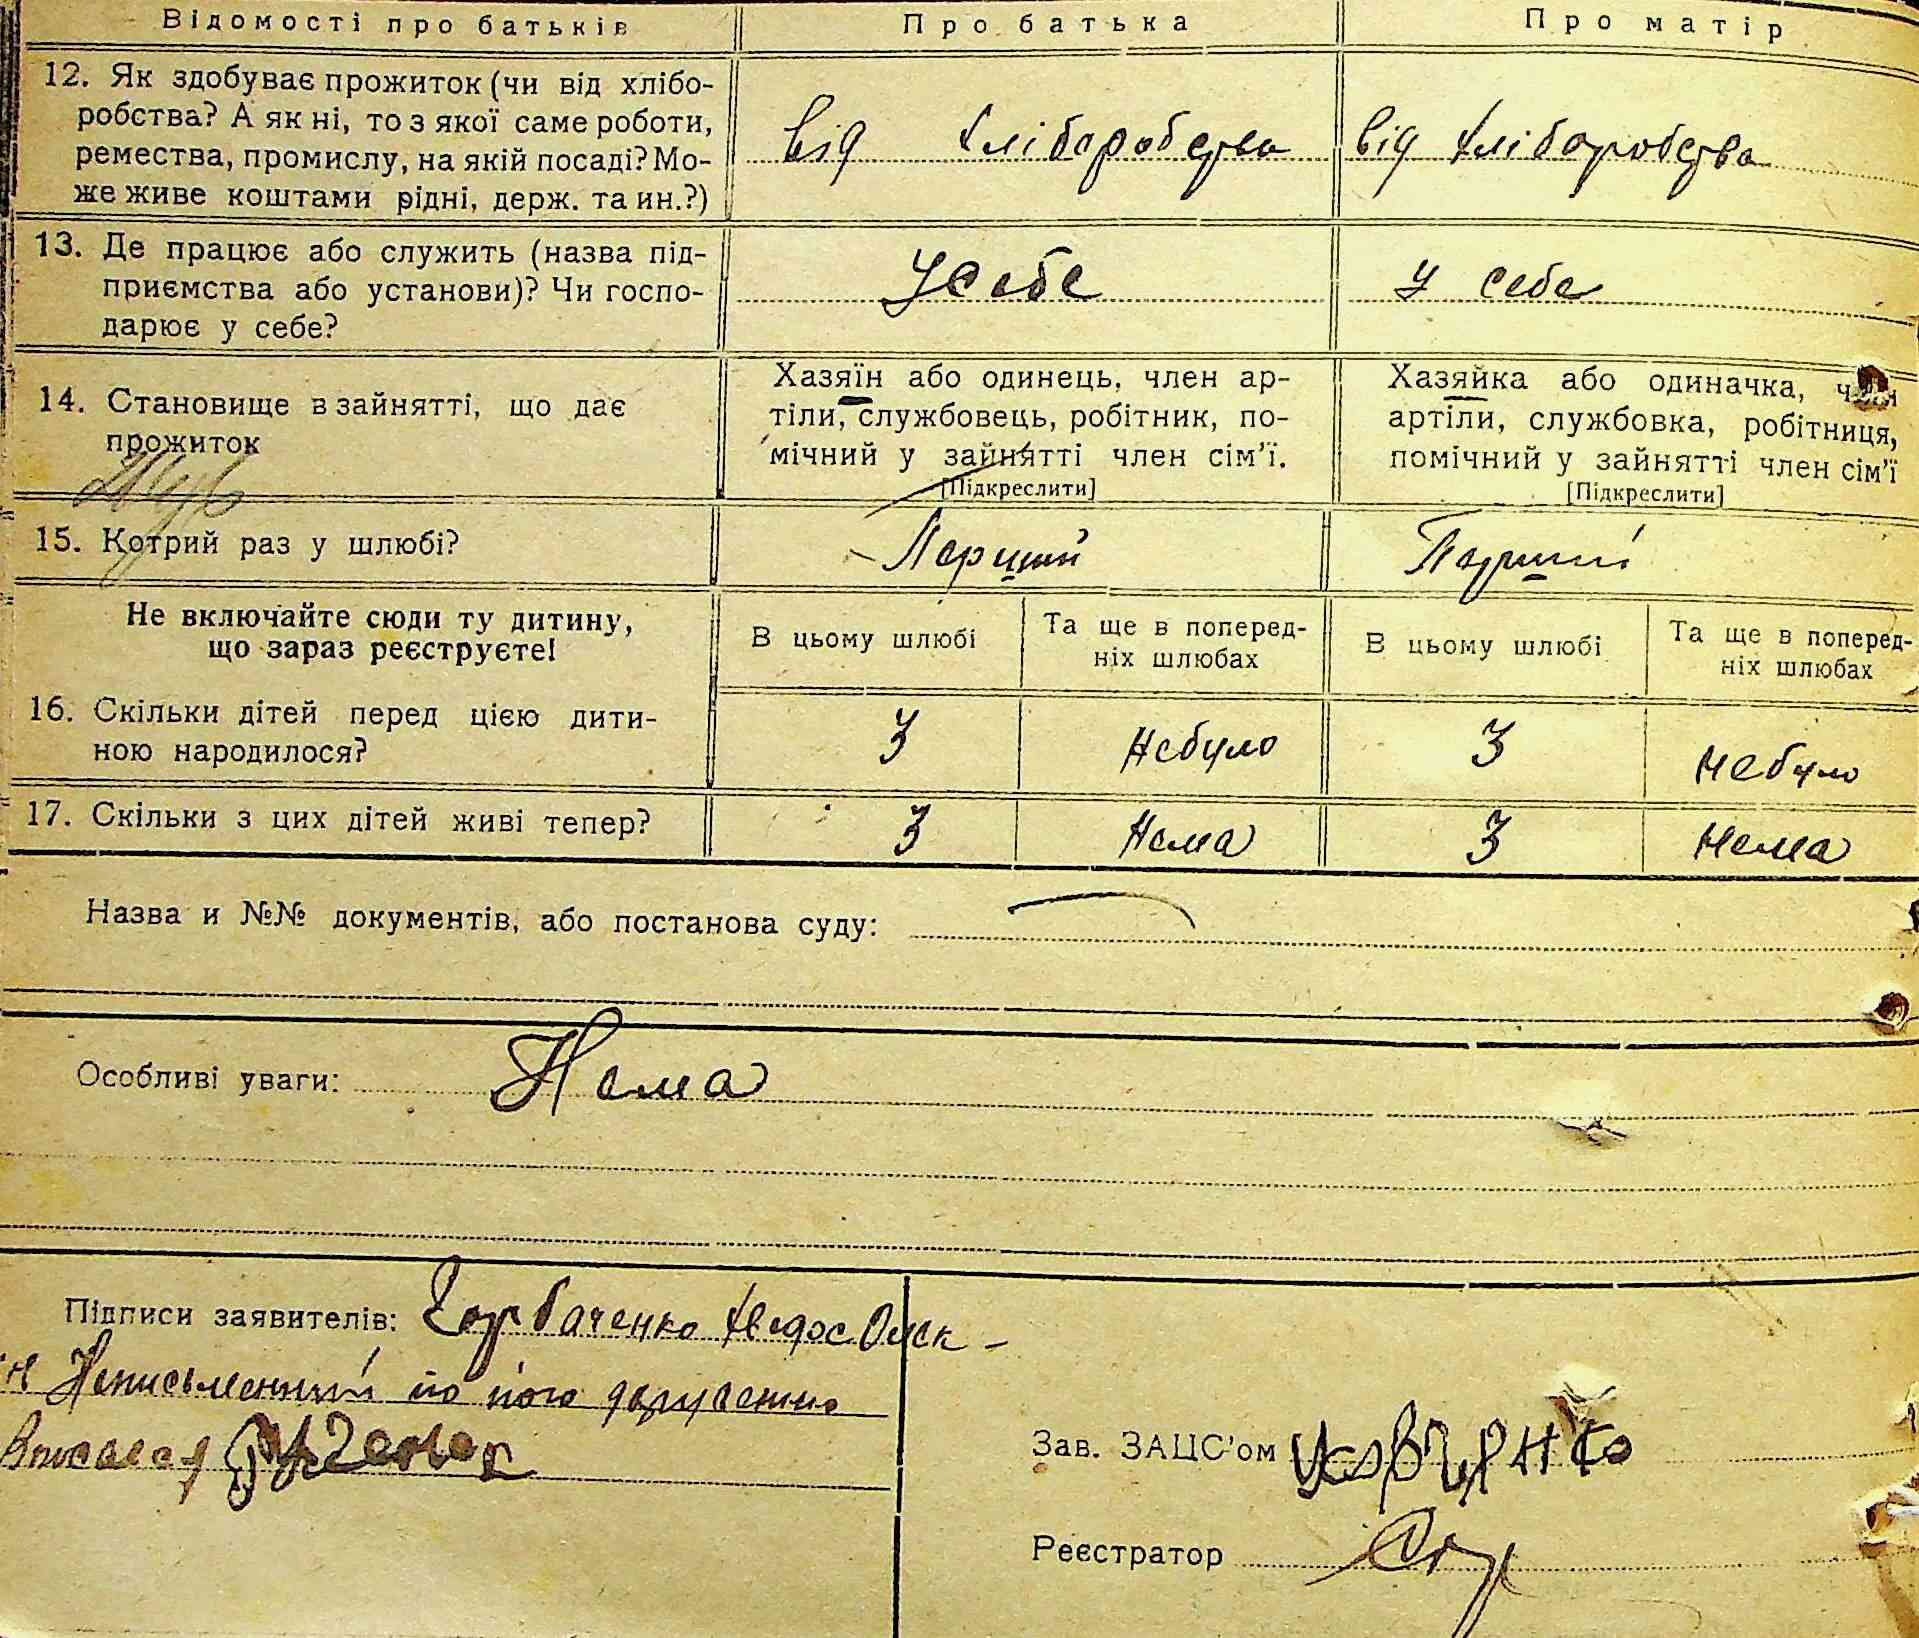 Відомості про батьків Про батька Про матір
12. Як здобуває прожиток (чи від хлібо-
робства? А як ні, то з якої саме роботи,
ремества, промислу, на якій посаді? Мо-
же живе коштами рідні, держ. та ин.?)
від хліборобства від хліборобства
13. Де працює або служить (назва під-
приємства або установи)? Чи госпо-
дарює у себе?
у себе у себе
14. Становище в зайнятті, що дає
прожиток
Хазяїн або одинець, член ар-
тіли, службовець, робітник, по-
мічний у зайнятті член сім'ї.
[Підкреслити]
Хазяйка або одиначка, член
артіли, службовка, робітниця,
помічний у зайнятті член сім'ї
[Підкреслити]
15. Котрий раз у шлюбі? Перший Перший
Не включайте сюди ту дитину,
що зараз реєструєте!
В цьому шлюбі
Та ще в поперед-
ніх шлюбах
В цьому шлюбі
Та ще в поперед-
ніх шлюбах
16. Скільки дітей перед цією дити-
ною народилося?
3 Небуло 3 Небуло
17. Скільки з цих дітей живі тепер? 3 Нема 3 Нема
Назва и №№ документів, або постанова суду:
Особливі уваги: Нема
Підписи заявителів: Горбаченко
Неписьменний по його дорученню
Вписався
Зав. ЗАЦС'ом
Реєстратор